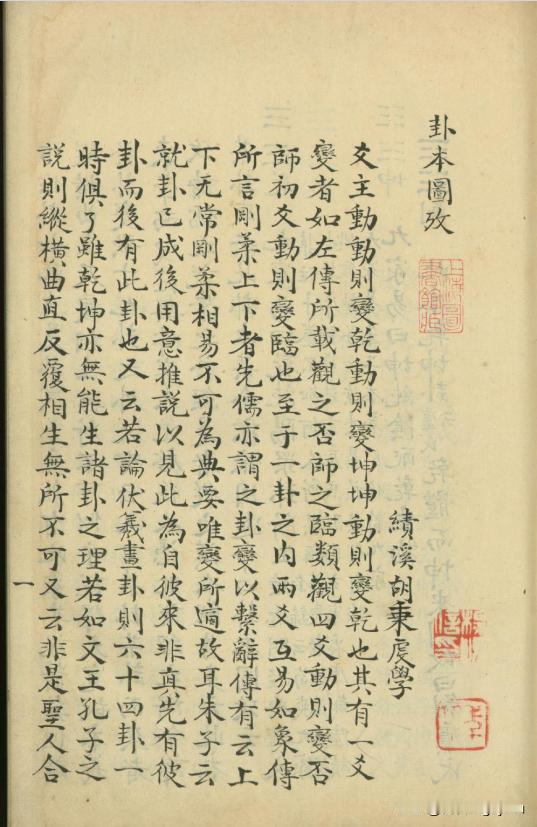 卦本圖攷
績溪胡秉虔學
爻主動動則變乾動則變坤坤動則變乾也其有一爻
變者如左傳所載觀之否師之臨類觀四爻動則變否
師初爻動則變臨也至于一卦之内兩爻互易如彖傳
所言剛柔上下者先儒亦謂之卦變以繫辭傳有云上
下无常剛柔相易不可為典要唯變所適故耳朱子云
就卦已成後用意推說以見此為自彼來非真先有彼
卦而後有此卦也又云若論伏羲畫卦則六十四卦一
時俱了雖乾坤亦無能生諸卦之理若如文王孔子之
說則縱橫曲直反覆相生無所不可又云非是聖人合
一